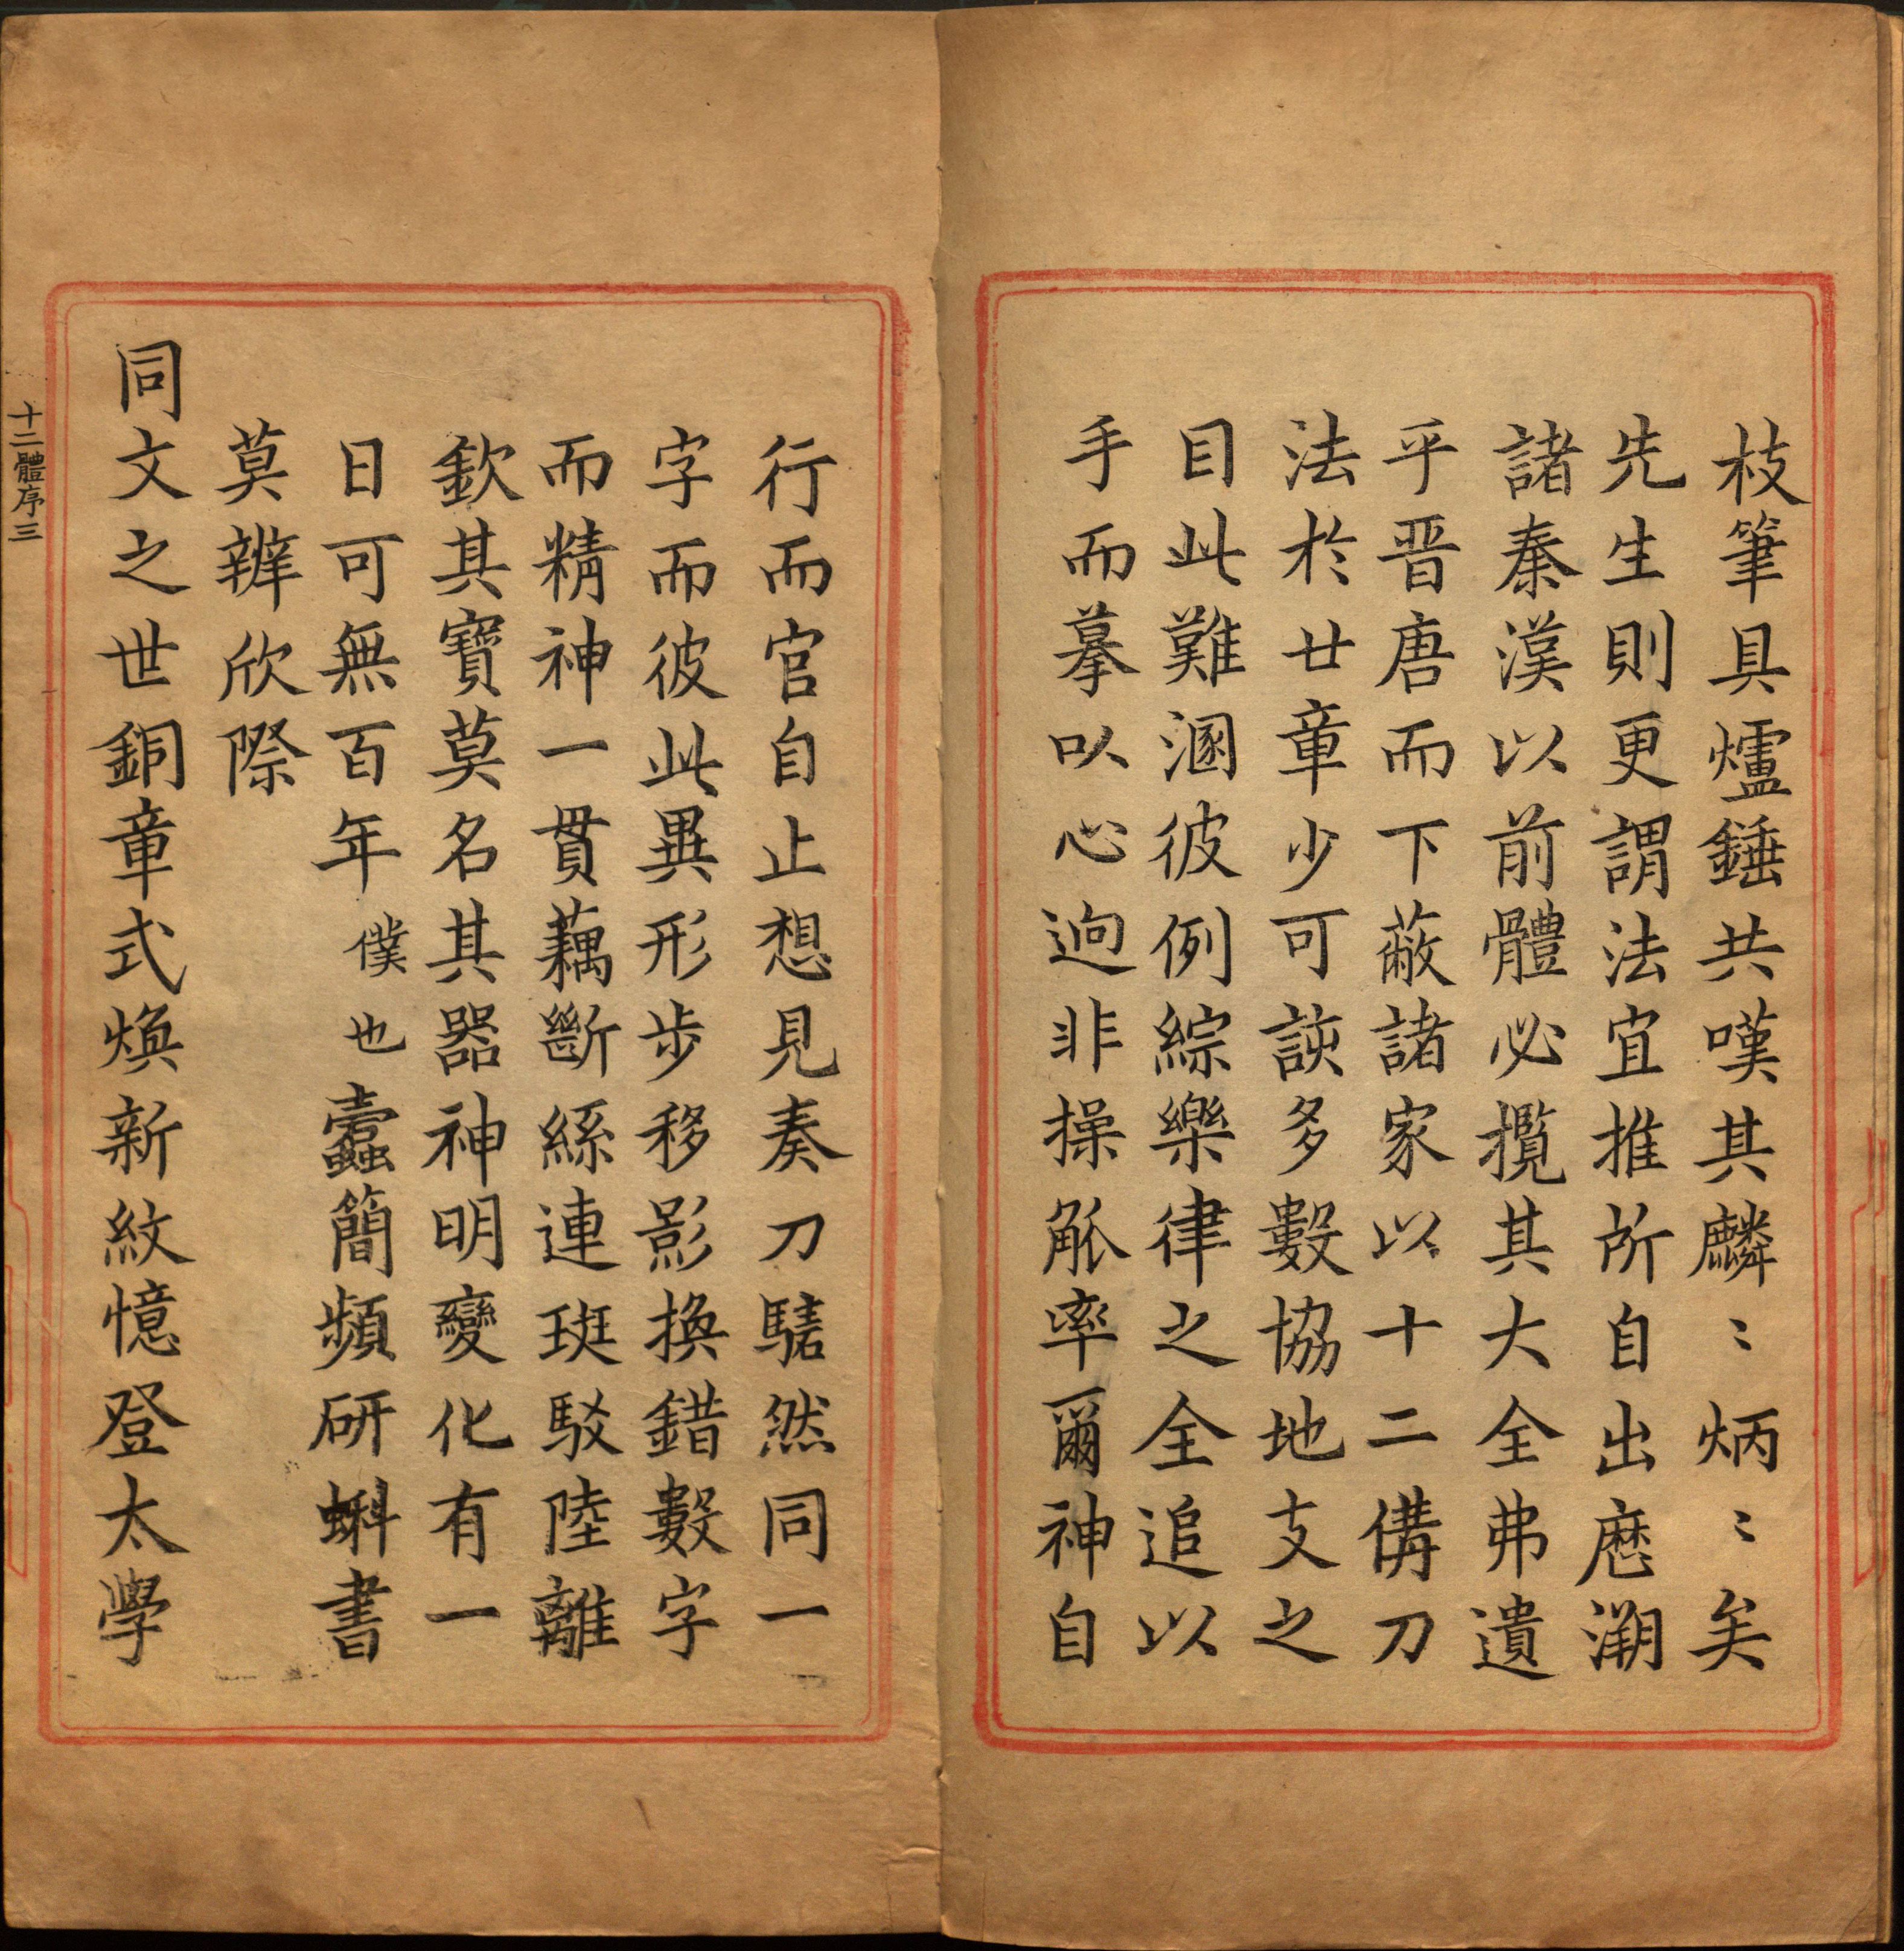 枝筆具爐錘共嘆其麟〻炳〻矣
先生則更謂法宜推所自出歷溯
諸秦漢以前體必攬其大全弗遺
乎晋唐而下蔽諸家以十二備刀
法於廿章少可該多數協地支之
目此難溷彼例綜樂律之全追以
手而摹以心迥非操觚率爾神自
行而官自止想見奏刀騞然同一
字而彼此異形步移影換錯數字
而精神一貫藕斷絲連斑駁陸離
欽其寶莫名其器神明變化有一
日可無百年僕也蠹簡頻研蝌書
莫辨欣際
同文之世銅章式煥新紋憶登太學
十二體序三